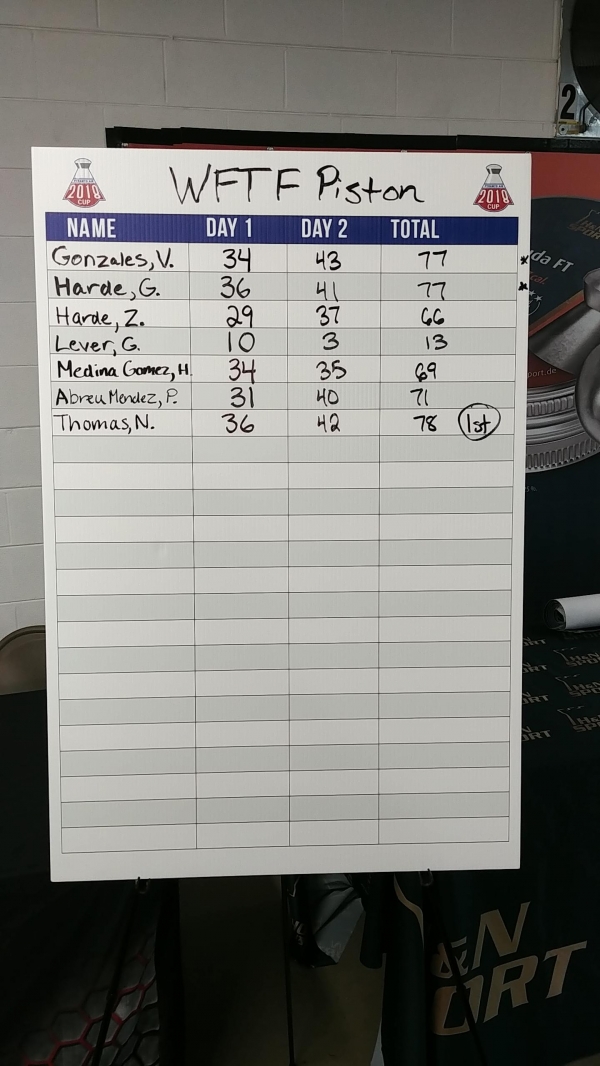 WFTF Piston
2018 CUP
2018 CUP
NAME DAY 1 DAY 2 TOTAL
Gonzales, V. 34 43 77 *
Harde, G. 36 41 77 *
Harde, Z. 29 37 66
Lever, G. 10 3 13
Medina Gomez, H. 34 35 69
Abreu Mendez, P. 31 40 71
Thomas, N. 36 42 78 1st
2
da FT
port.de
H&N
SPORT
&N
ORT